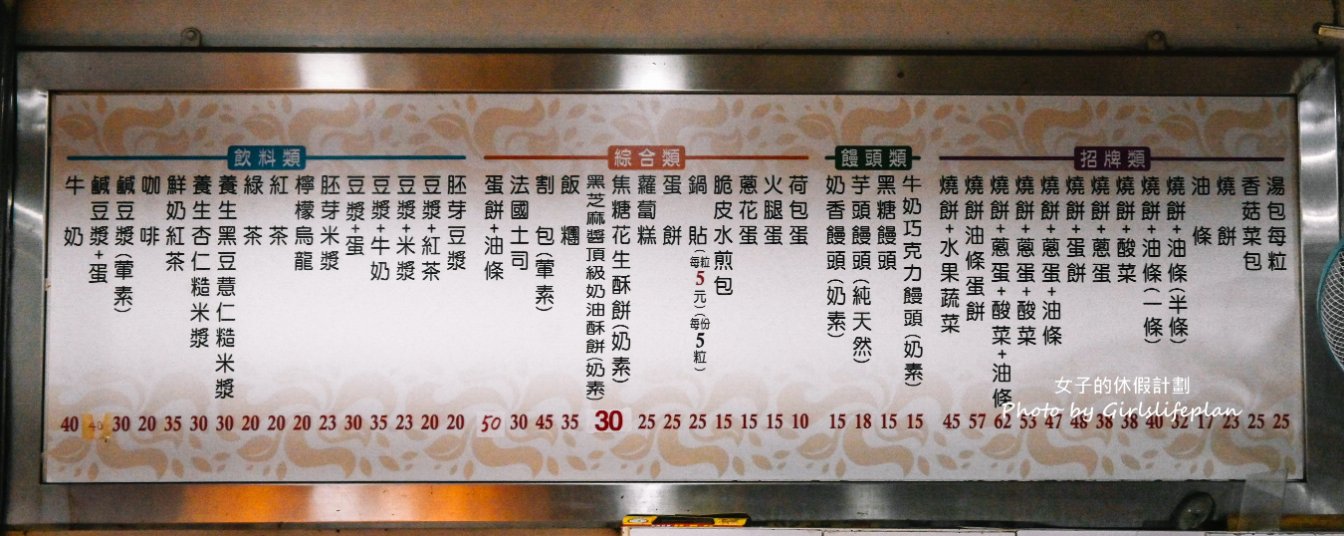 招牌類
湯包每粒 25
香菇菜包 25
燒餅 23
油條 17
燒餅+油條(半條) 32
燒餅+油條(一條) 40
燒餅+酸菜 38
燒餅+蔥蛋 38
燒餅+蛋餅 48
燒餅+蔥蛋+油條 47
燒餅+蔥蛋+酸菜 53
燒餅+蔥蛋+酸菜+油條 62
燒餅油條蛋餅 57
燒餅+水果蔬菜 45
饅頭類
牛奶巧克力饅頭(奶素) 15
黑糖饅頭 15
芋頭饅頭(純天然) 18
奶香饅頭(奶素) 15
綜合類
荷包蛋 10
火腿蛋 15
蔥花蛋 15
脆皮水煎包 15
鍋貼 每粒5元)(每份5粒) 25
蛋餅 25
蘿蔔糕 25
焦糖花生酥餅(奶素)
黑芝麻醬頂級奶油酥餅(奶素) 30
飯糰 35
割包(葷素) 45
法國土司 30
蛋餅+油條 50
飲料類
胚芽豆漿 20
豆漿+紅茶 20
豆漿+米漿 23
豆漿+牛奶 35
豆漿+蛋 30
胚芽米漿 23
檸檬烏龍 20
紅茶 20
綠茶 20
養生黑豆薏仁糙米漿 30
養生杏仁糙米漿 30
鮮奶紅茶 35
咖啡 20
鹹豆漿(葷素) 30
鹹豆漿+蛋
牛奶 40
女子的休假計劃
Photo by Girlslifeplan